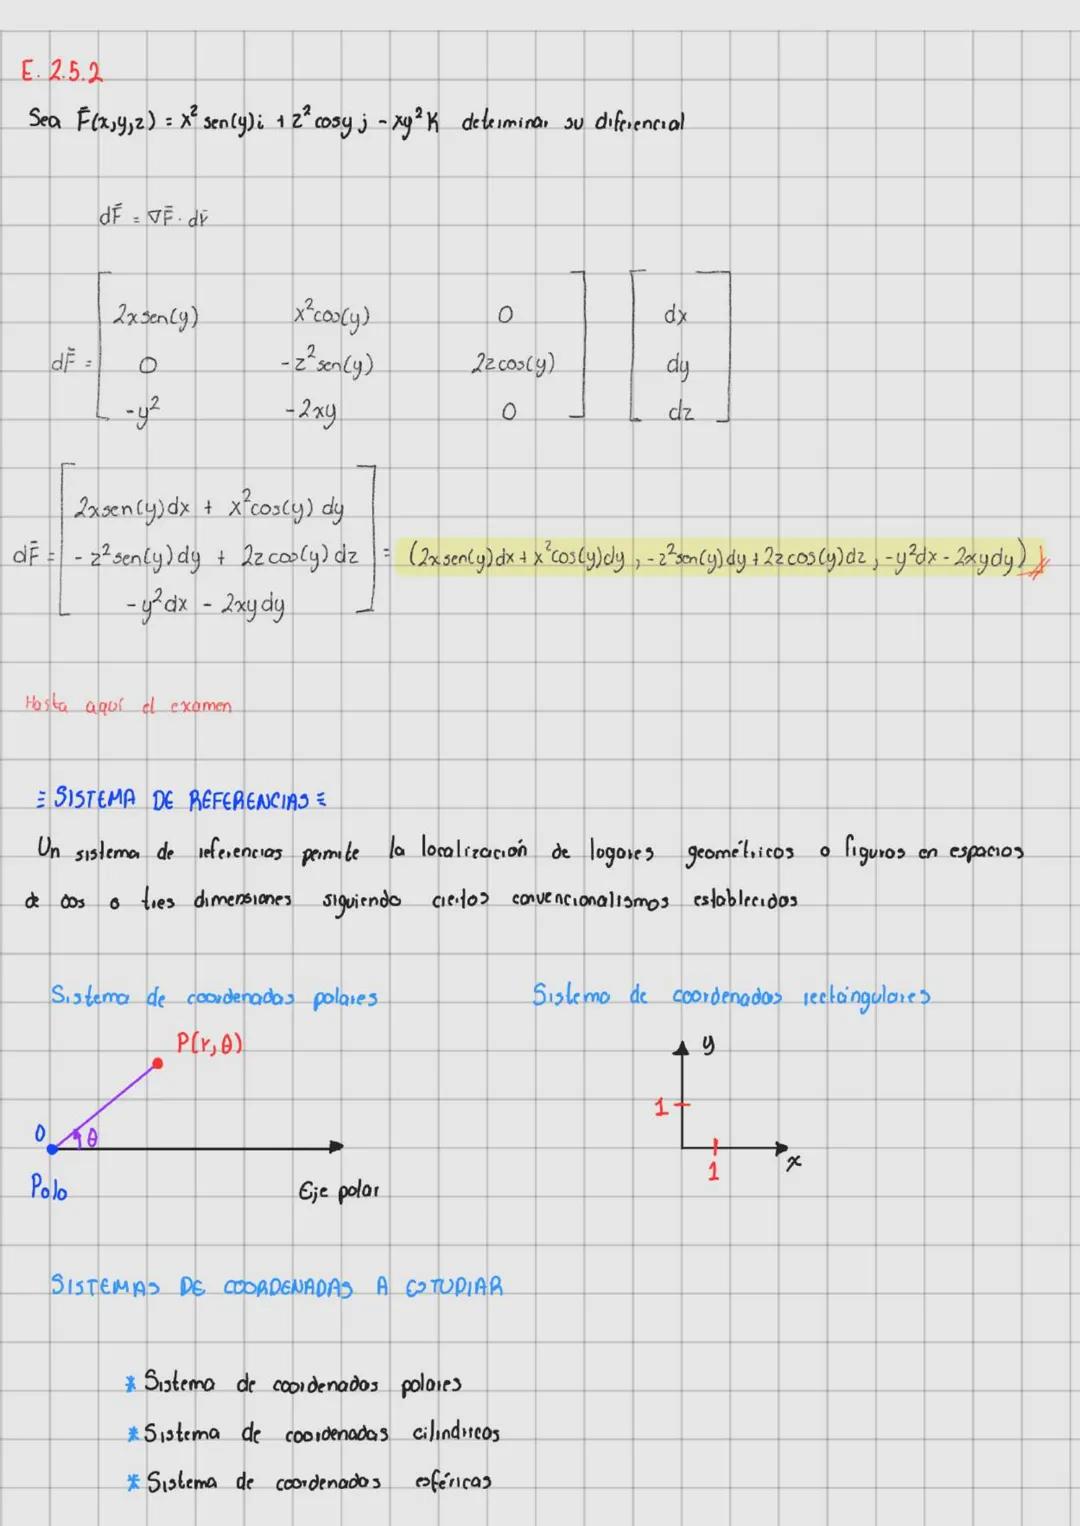 E. 2.5.2
Sea F̄(x,y,z) = x² sen(y)i + z² cosy j - xy² K determinar su diferencial
dF̄ = ∇F̄ · dr̄
2xsen(y) x²cos(y) 0 dx
dF̄ = 0 -z²sen(y) 2zcos(y) dy
-y² -2xy 0 dz
2xsen(y)dx + x²cos(y) dy
dF̄ = - z²sen(y)dy + 2zcos(y)dz = (2xsen(y)dx + x²cos(y)dy, -z²sen(y)dy + 2zcos(y)dz, -y²dx - 2xydy)
-y²dx - 2xydy
Hasta aquí el examen
SISTEMA DE REFERENCIAS
Un sistema de referencias permite la localización de logares geométricos o figuras en espacios
de dos o tres dimensiones siguiendo ciertos convencionalismos establecidos
Sistema de coordenadas polares Sistema de coordenadas rectángulares
P(r, θ) y
1
O θ
x
1
Polo Eje polar
SISTEMAS DE COORDENADAS A ESTUDIAR
* Sistema de coordenadas polares
* Sistema de coordenadas cilindricas
* Sistema de coordenadas esféricas